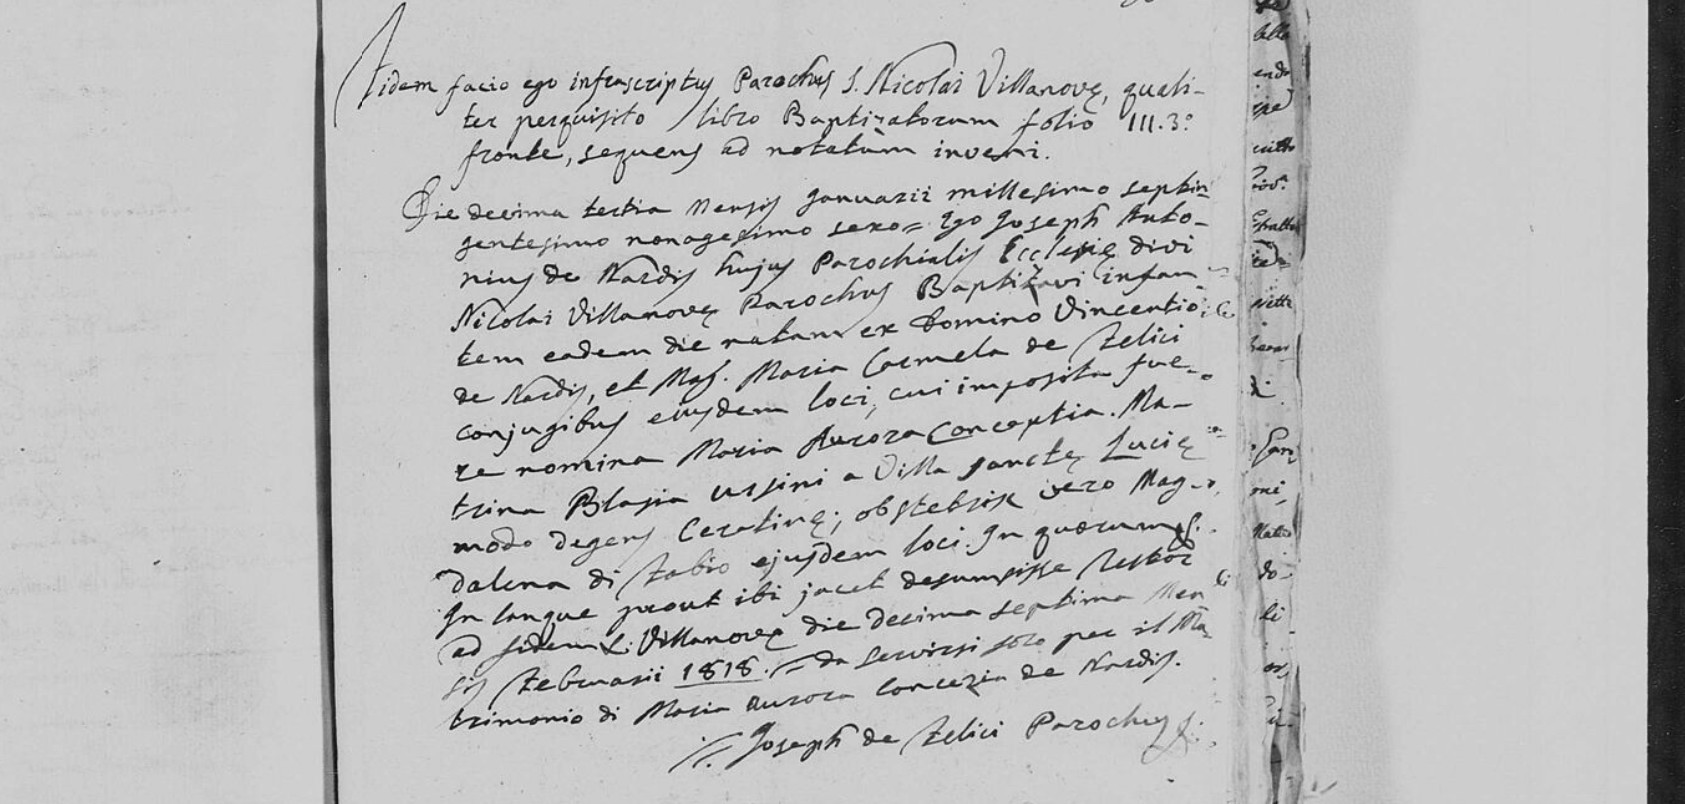 Fidem facio ego infrascriptus Parochus S. Nicolai Villanovę, quali-
ter perquisito libro Baptizatorum folio 111. 3.º
fronte, sequens ad notatum inveni.
Die decima tertia Mensis Januarii millesimo septin-
gentesimo nonagesimo sexo= Ego Joseph Anto-
nius de Nardis hujus Parochialis Ecclesię divi
Nicolai Villanovę Parochus Baptizavi infan-
tem eadem die natam ex Domino Vincentio
de Nardis, et Mag. Maria Carmela de Felici
conjugibus ejusdem loci, cui imposita fue-
re nomina Maria Aurora Conceptia. Ma-
trina Blasia Ursini a Villa sanctę Lucię
modo degens Ceratinę; obstetrix vero Mag-
dalena di Fabio ejusdem loci. In quorum
In langue prout ibi jacet desumpsisse testor
ad fidem. Villanovę die decima septima Men
sis Februarii 1818. = da servirsi solo per il Ma-
trimonio di Maria Aurora Concezia de Nardis.
Joseph de Felici Parochus